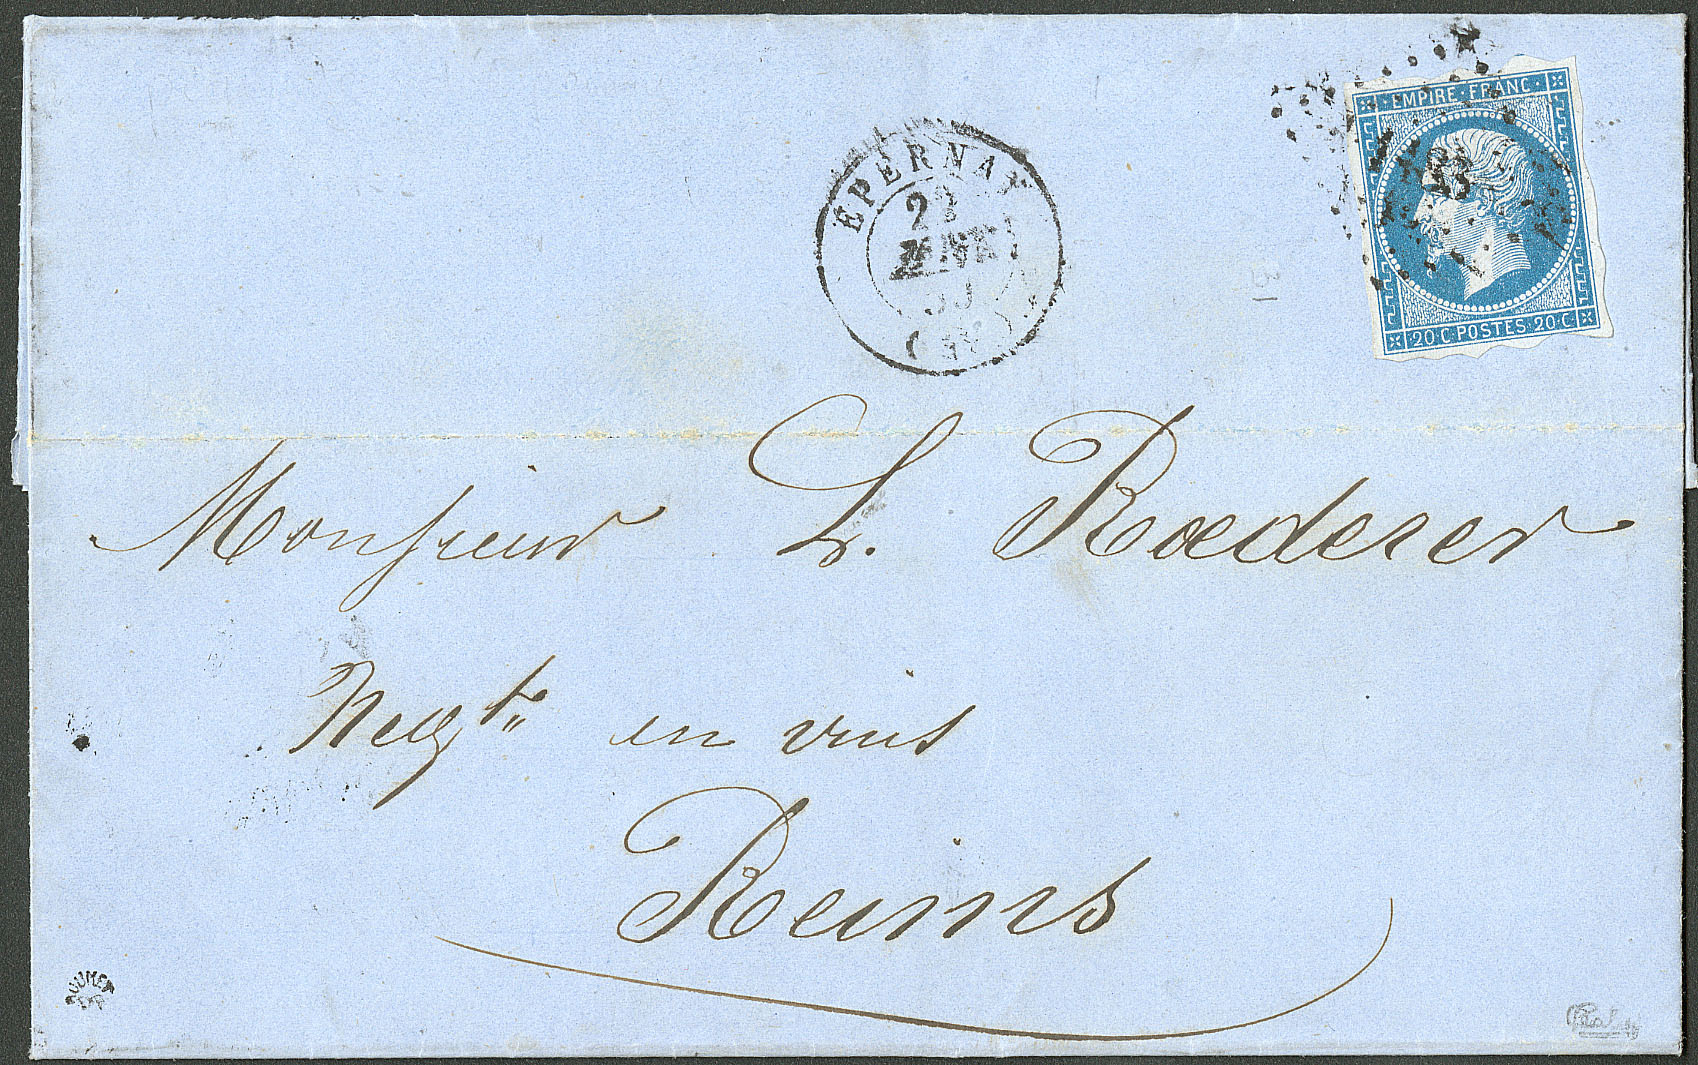 EMPIRE · FRANC ·
20 C. POSTES 20 C.
EPERNAY
Monsieur L. Roederer
Negt. en vins
Reims